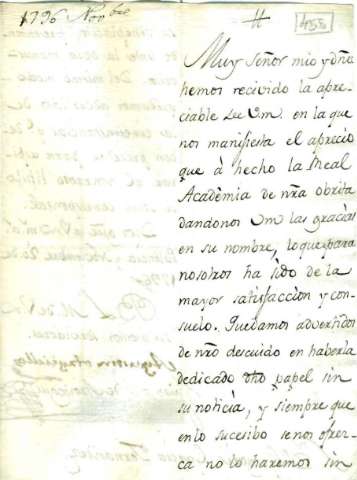 1796 Nov.bre
455
Muy Señor mio y dño
hemos recivido la apre-
ciable de Vm en la que
nos manifiesta el aprecio
que à hecho la Real
Académia de nra obrita
dandonos Vm las gracias
en su nombre, lo que para
nosotros ha sido de la
mayor satisfaccion y con-
suelo. Quedamos advertidos
de nro descuido en haberla
dedicado dho papel sin
su noticia, y siempre que
en lo sucesibo se nos ofrez-
ca no lo haremos sin